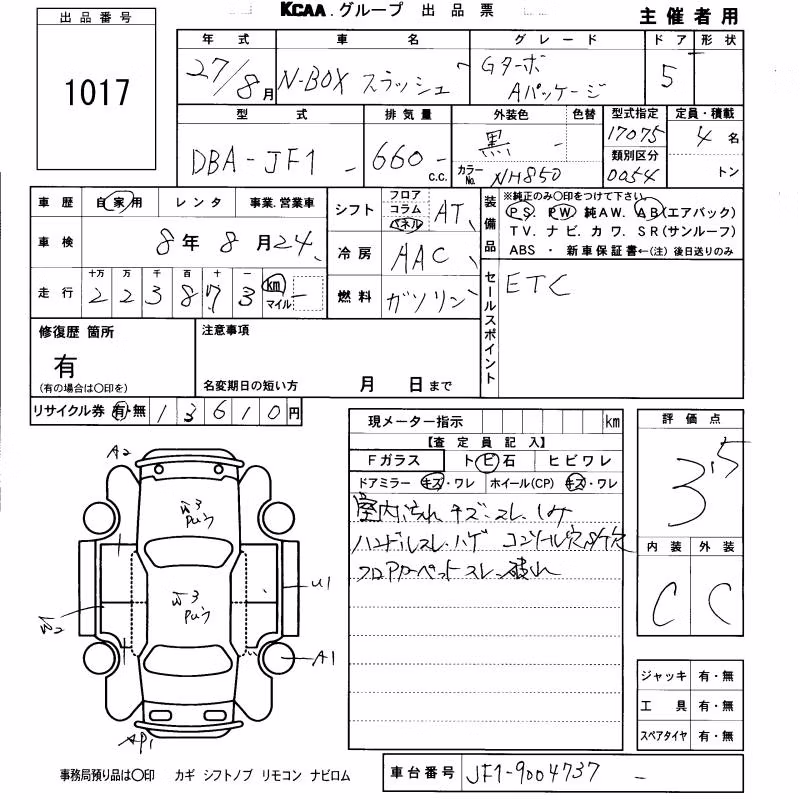 KCAA.グループ 出品票
主催者用
出品番号
1017
年式 車名 グレード ドア 形状
27/8月 N-BOX スラッシュ Gターボ Aパッケージ 5
型式 排気量 外装色 色替 型式指定 定員・積載
DBA-JF1 660 c.c. 黒 17075 4名
カラーNo. NH850 類別区分 0054 トン
車歴 自家用 レンタ 事業.営業車
車検 8年8月24
走行 十万 万 千 百 十 一
223873 km マイル
シフト フロア コラム パネル AT
冷房 AAC
燃料 ガソリン
装備品
※純正のみ○印をつけて下さい
PS. PW 純AW. AB(エアバック)
TV. ナビ. カワ. SR(サンルーフ)
ABS ・ 新車保証書←(注)後日送りのみ
セールスポイント
ETC
修復歴 箇所
有
(有の場合は○印を)
注意事項
名変期日の短い方 月 日まで
リサイクル券 有・無 13610円
現メーター指示 km
【査定員記入】
Fガラス トビ石 ヒビワレ
ドアミラー キズ・ワレ ホイール(CP) キズ・ワレ
室内汚れ キズ・スレ・
ハンドルスレ・ハゲ コンソール穴
フロアカーペットスレ 破れ
評価点
3.5
内装 外装
C C
A2
U1
A1
AP1
ジャッキ 有・無
工具 有・無
スペアタイヤ 有・無
事務局預り品は○印 カギ シフトノブ リモコン ナビロム
車台番号 JF1-9004737